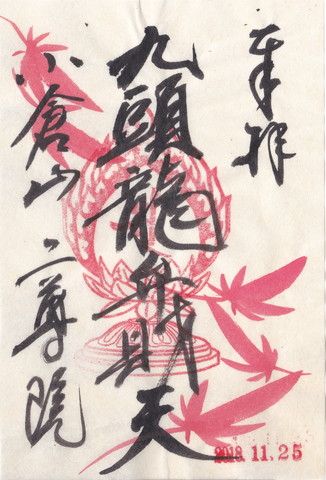 奉拝
九頭龍弁財天
小倉山 二尊院
2018.11.25